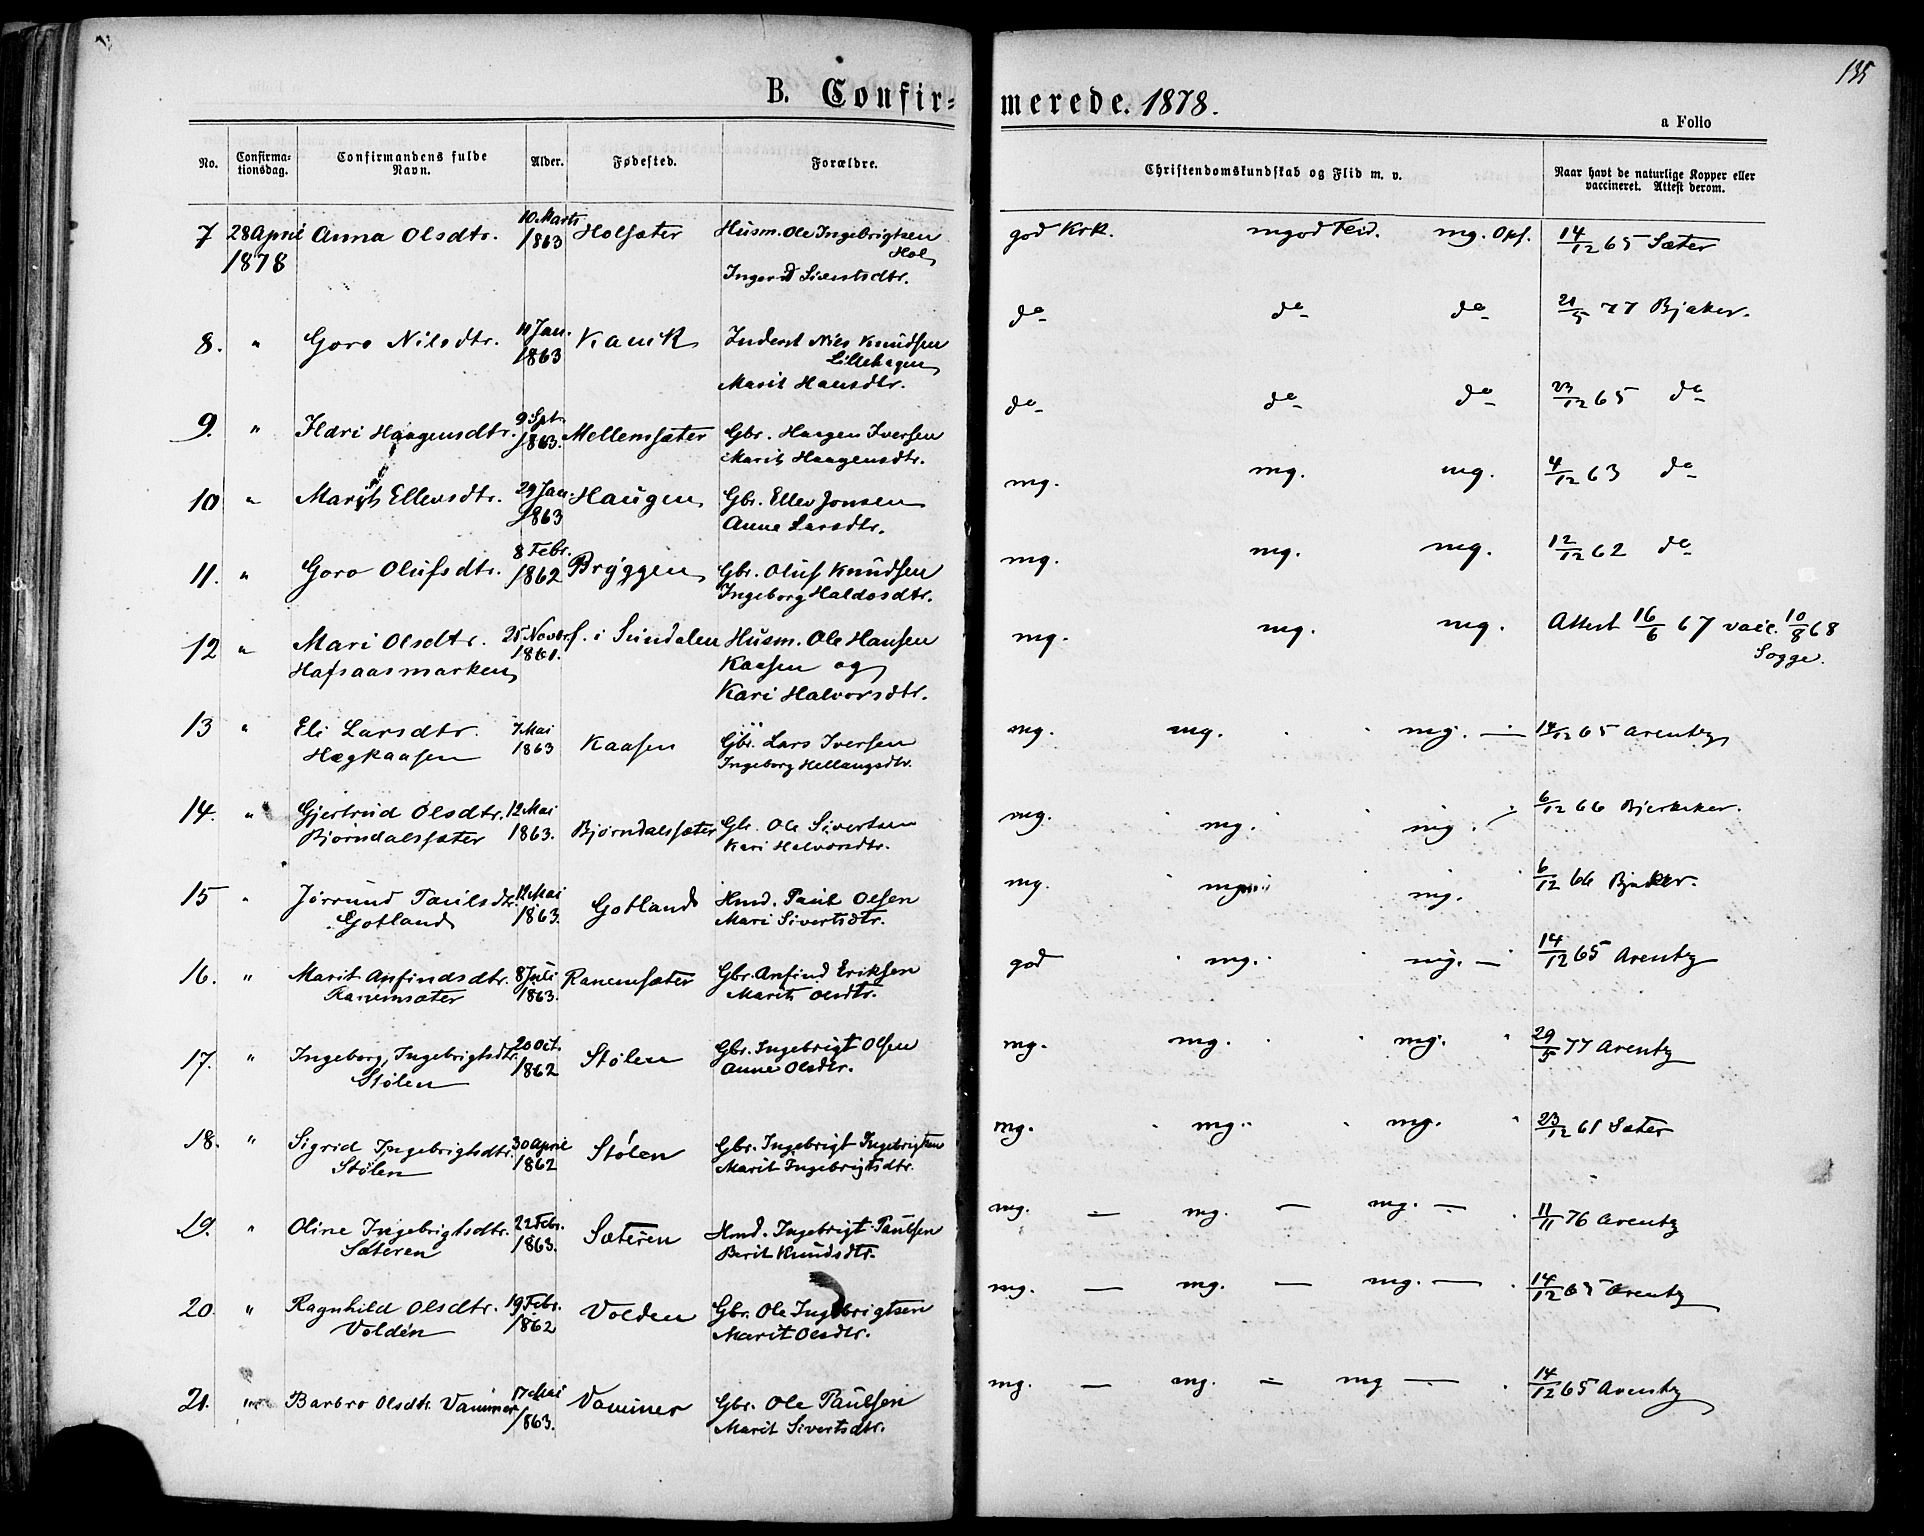 135
B. Confir= merede. 1878.
a Folio
No. Confirma-tionsdag. Confirmandens fulde Navn. Alder. Fødested. Forældre. Christendomskundskab og Flid m. v. Naar havt de naturlige Kopper eller vaccineret. Attest derom.
7 28 April 1878 Anna Olsdtr. 10 Marts 1863 Holsæter Husm. Ole Ingebrigtsen Hol god Krk. mgod Flid. mg. Opf. 14/12 65 Sæter
Ingerid Sivertsdtr.
8. " Goro Nilsdtr. Jan. 1863 Kavik Inderst Nils Knudsen do do do /5 77 Bjaker.
Lillehagen
Marit Hansdtr.
9. " Ildri Haagensdtr. 9 Spt. 1863. Mellemsæter Gbr. Haagen Iversen do do do 23/12 65 do
Marit Haagensdtr.
10 " Marit Ellevsdtr. 29 Jan. 1863 Haugen Gbr. Ellev Jonsen mg. mg. mg. 4/12 63 do
Anne Larsdtr.
11. " Goro Olufsdtr. 8 Febr. 1862 Bryggen Gbr. Oluf Knudsen mg. mg. mg. 12/12 62 do
Ingeborg Haldosdtr.
12 " Mari Olsdtr. 25 Novbr. 1861. f. i Sundalen Husm. Ole Hansen mg. mg. mg. Attest 16/6 67 vacc. 10/8 68
Hafsaasmarken Kaasen og Sogge.
Kari Halvorsdtr.
13 " Eli Larsdtr. 7 Mai 1863 Kaasen Gbr. Lars Iversen mg. mg. mg. 14/12 65 Arentz
Hægkaasen Ingeborg Hellaugsdtr.
14. " Gjertrud Olsdtr. 12 Mai 1863. Bjørndalsæter Gbr. Ole Sivertsen mg. mg. mg. 6/12 66 Bjerkeker.
Bjørndalsæter Kari Halvorsdtr.
15 " Jørrund Paulsdtr. 12 Mai 1863. Gotland Hmd. Paul Olsen mg. mg. mg. 6/12 66 Bjaker.
Gotland Mari Sivertsdtr.
16. " Marit Anfindsdtr. 8 Juli 1863. Ranemsæter Gbr. Anfind Eriksen god mg. mg. 14/12 65 Arentz
Ranemsæter Marit Olsdtr.
17. " Ingeborg Ingebrigtsdtr. 20 Oct. 1862 Stølen Gbr. Ingebrigt Olsen mg. mg. mg. 29/5 77 Arentz
Stølen Anne Olsdtr.
18. " Sigrid Ingebrigtsdtr. 30 April 1862 Stølen Gbr. Ingebrigt Ingebrigtsen mg. mg. mg. 23/12 61 Sæter
Stølen Marit Ingebrigtsdtr.
19. " Oline Ingebrigtsdtr. 22 Febr. 1863. Sæteren Hmd. Ingebrigt Paulsen mg. mg. mg. 11/11 76 Arentz
Sæteren Berit Knudsdtr.
20. " Ragnhild Olsdtr. 19 Febr. 1862 Volden Gbr. Ole Ingebrigtsen mg. mg. mg. 14/12 65 Arentz
Volden Marit Olsdtr.
21. " Barbro Olsdtr. Vammer 17 Mai 1863. Vammer Gbr. Ole Paulsen mg. mg. mg 14/12 65 Arentz
Marit Sivertsdtr.